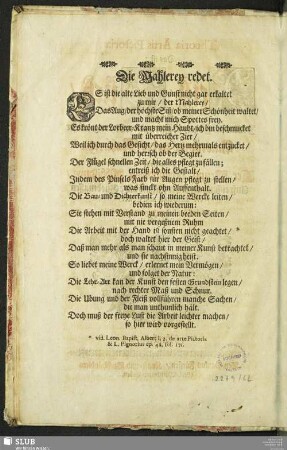 Die Mahlerey redet.
ES ist die alte Lieb und Gunst nicht gar erkaltet
zu mir / der Mahlerey /
Das Aug der höchste Sitz ob meiner Schönheit waltet /
und macht mich Spottes frey.
Es krönt der Lorbeer-Krantz mein Haubt, ich bin beschmucket
mit überreicher Zier /
Weil ich durch das Gesicht / das Hertz mehrmals entzucket /
und herrsch ob der Begier.
Der Flügel schnellen Zeit / die alles pflegt zu fällen ;
entreiß ich die Gestalt /
Indem des Pinsels Farb für Augen pflegt zu stellen /
was sinckt ohn Aufenthalt.
Die Bau- und Dichterkunst / so meine Werck leiten /
bedien ich wiederum :
Sie stehen mit Verstand zu meinen beeden Seiten /
mit nie vergaßnem Ruhm
Die Arbeit mit der Hand ist sonsten nicht geachtet /
doch waltet hier der Geist /
Daß man mehr als man schaut in meiner Kunst betrachtet /
und sie nachsinnig heist.
So liebet meine Werck / erlernet mein Vermögen /
und folget der Natur :
Die Lehr-Art kan der Kunst den festen Grundstein legen /
nach rechter Maß und Schnur.
Die Ubung und der Fleiß vollführen manche Sachen /
die man unthunlich hält.
Doch muß der freye Lust die Arbeit leichter machen /
so hier wird vorgestellt.
* vid. Leon. Baptist. Alberti l. 3. de arte Pictoria
& L. Pignorius ep. 44. fol. 171.
SLUB